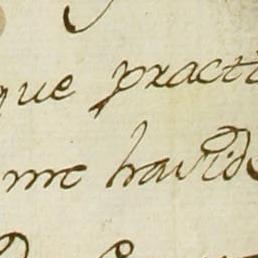 que practi
me havid